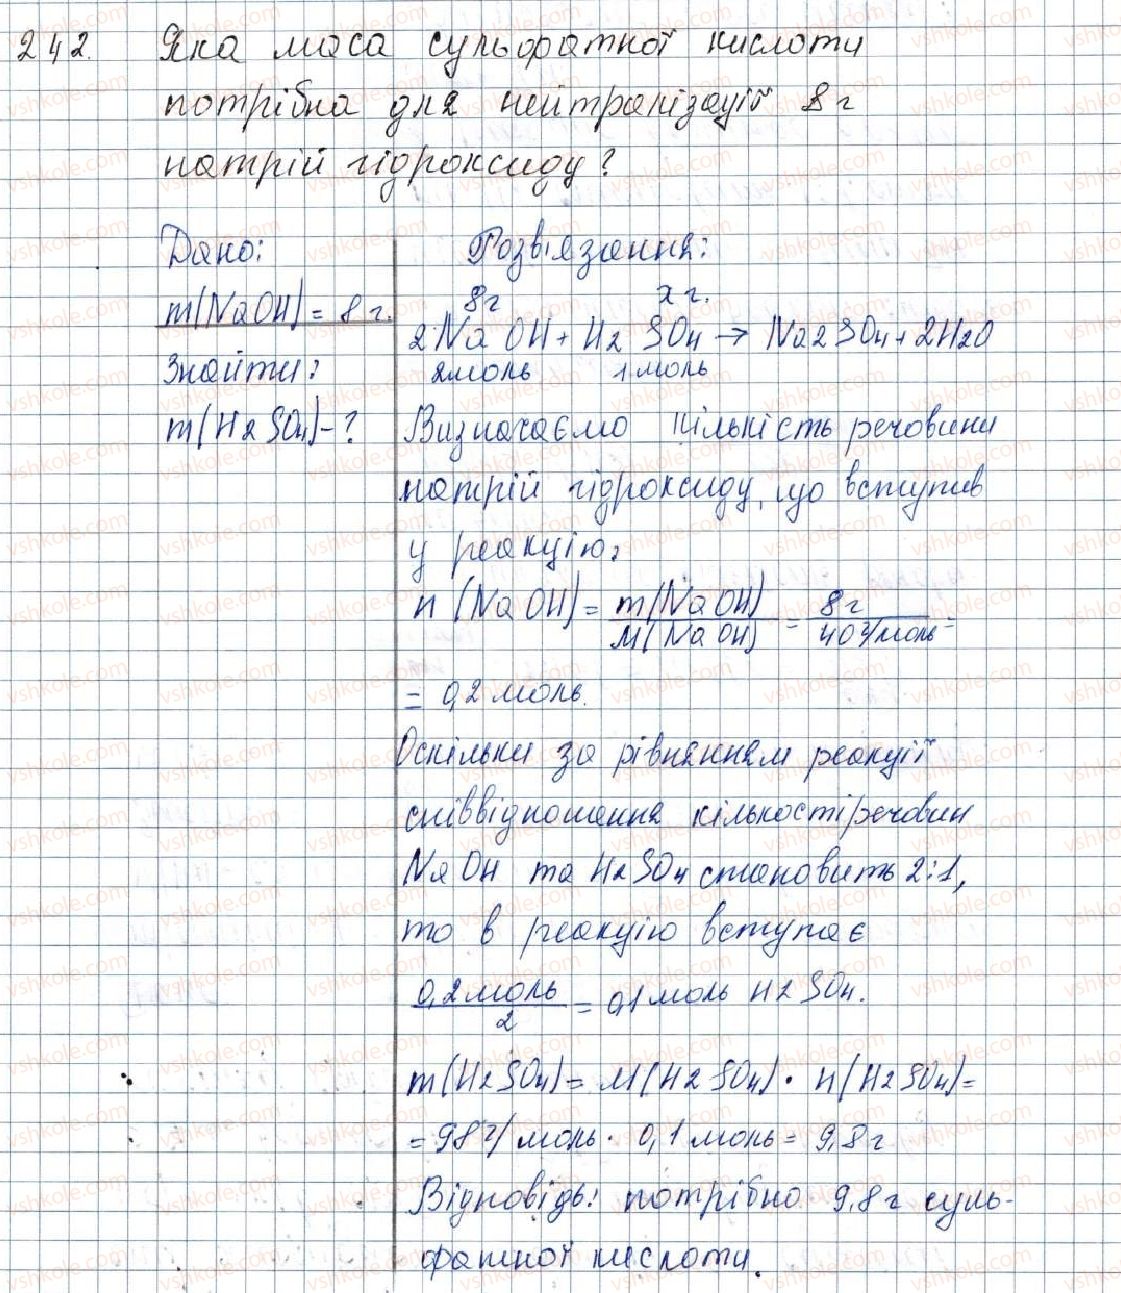 242. Яка маса сульфатної кислоти
потрібна для нейтралізації 8 г
натрій гідроксиду?
Дано:
m(NaOH) = 8 г.
Знайти:
m(H2SO4)-?
Розв'язання:
8г x г.
2NaOH + H2SO4 → Na2SO4 + 2H2O
2моль 1 моль
Визначаємо кількість речовини
натрій гідроксиду, що вступив
у реакцію:
n(NaOH) = m(NaOH)/M(NaOH) = 8 г/40 г/моль =
= 0,2 моль.
Оскільки за рівнянням реакції
співвідношення кількості речовин
NaOH та H2SO4 становить 2:1,
то в реакцію вступає
0,2 моль/2 = 0,1 моль H2SO4.
m(H2SO4) = M(H2SO4) · n(H2SO4) =
= 98 г/моль · 0,1 моль = 9,8 г
Відповідь: потрібно 9,8 г суль-
фатної кислоти.